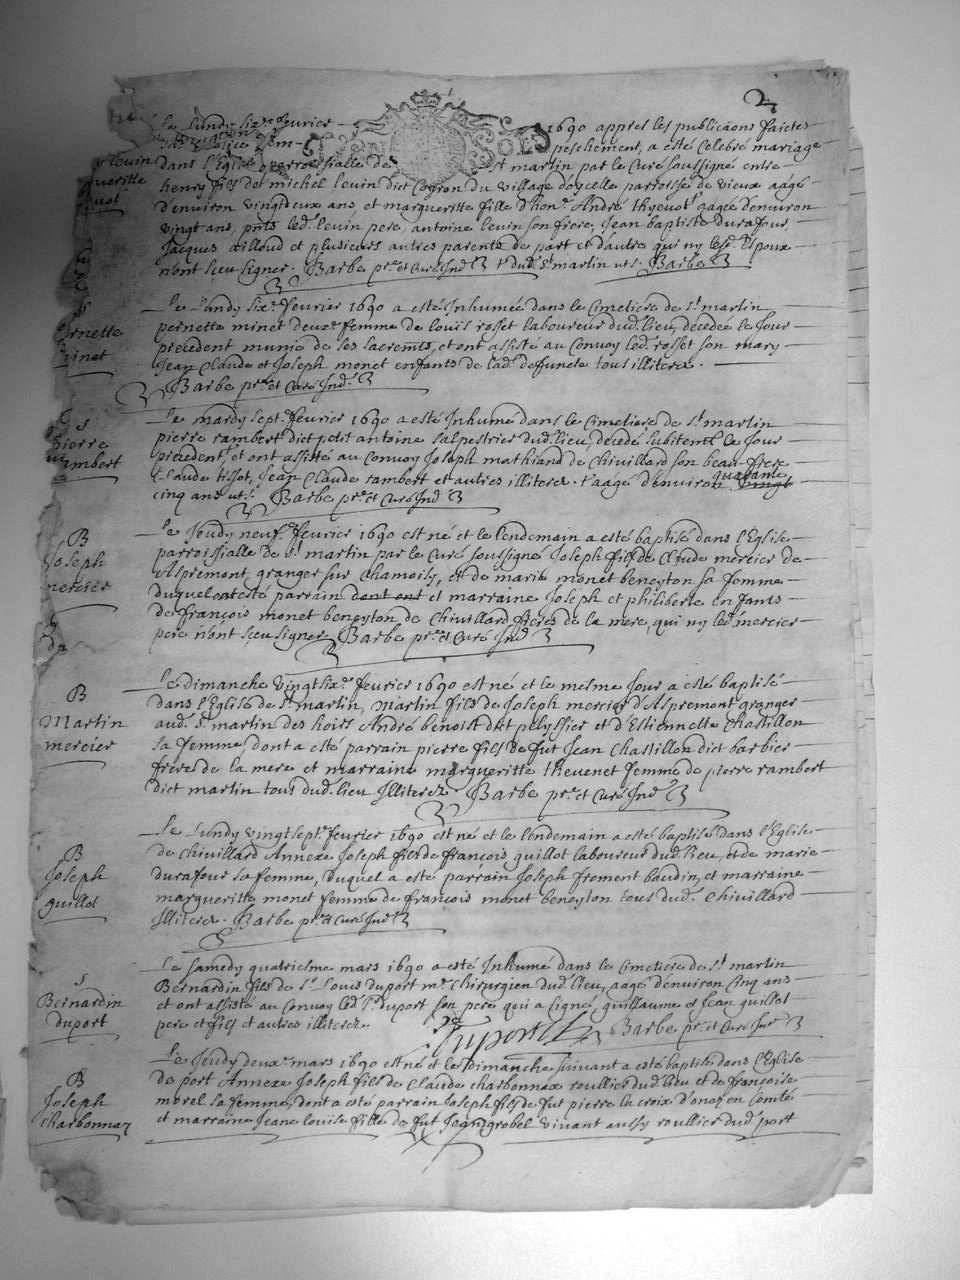 2
Le Lundy six.e feurier 1690 appres les publicãons faictes
peschement, a esté Celebré mariage
dans l'Eglise parroissialle de St martin par le Curé soussigné entre
henry fils de michel leuin dict Coyron du village d'oyselle parroisse de vieux aagé
d'environ vingtdeux ans et margueritte fille d'hon. André thyeuot aagée d'environ
vingt ans, pnts led. leuin pere, antoine leuin son frere, Jean baptiste durafour,
Jacques aillaud et plusieurs autres parents de part et d'autre qui ny lesd. Espoux
n'ont sçeu signer. Barbe ptre et Curé Ind. t dud. St martin uts. Barbe
pernette
minet
Le Lundy six.e feurier 1690 a esté Inhumée dans le Cimetiere de St martin
pernette minet deux.e femme de louis rosset laboureur dud. lieu, decedée le Jour
precedent munie de ses sacremts, et ont assisté au Convoy led. rosset son mary
Jean Claude et Joseph monet enfants de lad. deffuncte tous illiteres.
Barbe ptre et Curé Ind.
S
pierre
rambert
Le mardy sept.e feurier 1690 a esté Inhumé dans le Cimetiere de St martin
pierre rambert dict petit antoine salpestrier dud. lieu, decedé subitemt le Jour
precedent, et ont assisté au Convoy Joseph mathiand de Chiuillard son beau frere
Claude tissot, Jean Claude rambert et autres illiteres. t aagé d'environ quarante vingt
cinq ans uts. Barbe ptre et Curé Ind
B
Joseph
mercier
Le Jeudy neuf.e feurier 1690 est né et le lendemain a esté baptisé dans l'Eglise
parroissialle de St martin par le Curé soussigné Joseph fils de Claude mercier de
Aspremont granger sur Chamoisy, et de marie monet beneyton sa femme
duquel ont esté parrain dont ont et marraine Joseph et philiberte enfants
de françois monet beneyton de Chiuillard freres de la mere, qui ny led. mercier
pere n'ont sçeu signer Barbe ptre et Curé Ind
B
Martin
mercier
Le dimanche vingtsix.e feurier 1690 est né et le mesme Jour a esté baptisé
dans l'Eglise de St martin, Martin fils de Joseph mercier d'Aspremont granger
aud. St martin des hoirs André benoist dict pelyssier et d'Estiennette Chastillon
sa femme, dont a esté parrain pierre fils de fut Jean Chastillon dict barbier
frere de la mere et marraine margueritte theuenet femme de pierre rambert
dict martin tous dud. lieu Illiteres. Barbe ptre et Curé Ind
B
Joseph
guillot
Le Lundy vingtsept.e feurier 1690 est né et le lendemain a esté baptisé dans l'Eglise
de Chiuillard Annexe Joseph fils de françois guillot laboureur dud. lieu, et de marie
durafour sa femme, duquel a esté parrain Joseph froment boudin, et marraine
margueritte monet femme de françois monet beneyton tous dud. Chiuillard
Illiteres. Barbe ptre et Curé Ind
S
Bernardin
duport
Le samedy quatriesme mars 1690 a esté Inhumé dans le Cimetiere de St martin
Bernardin fils de Sr Louis duport me Chirurgien dud. lieu, aagé d'environ Cinq ans
et ont assisté au Convoy led. Sr duport son pere qui a signé, guillaume et Jean guillot
pere et fils et autres illiteres. Duport Barbe ptre et Curé Ind
B
Joseph
Charbonnax
Le Jeudy deux.e mars 1690 est né et le dimanche suiuant a esté baptisé dans l'Eglise
de port Annexe Joseph fils de Claude Charbonnax roullier dud. lieu et de françoise
morel sa femme, dont a esté parrain Joseph fils de fut pierre la croix d'onoz en Comté
et marraine Jeane louise fille de fut Jean grobel vivant aussy roullier dud. port